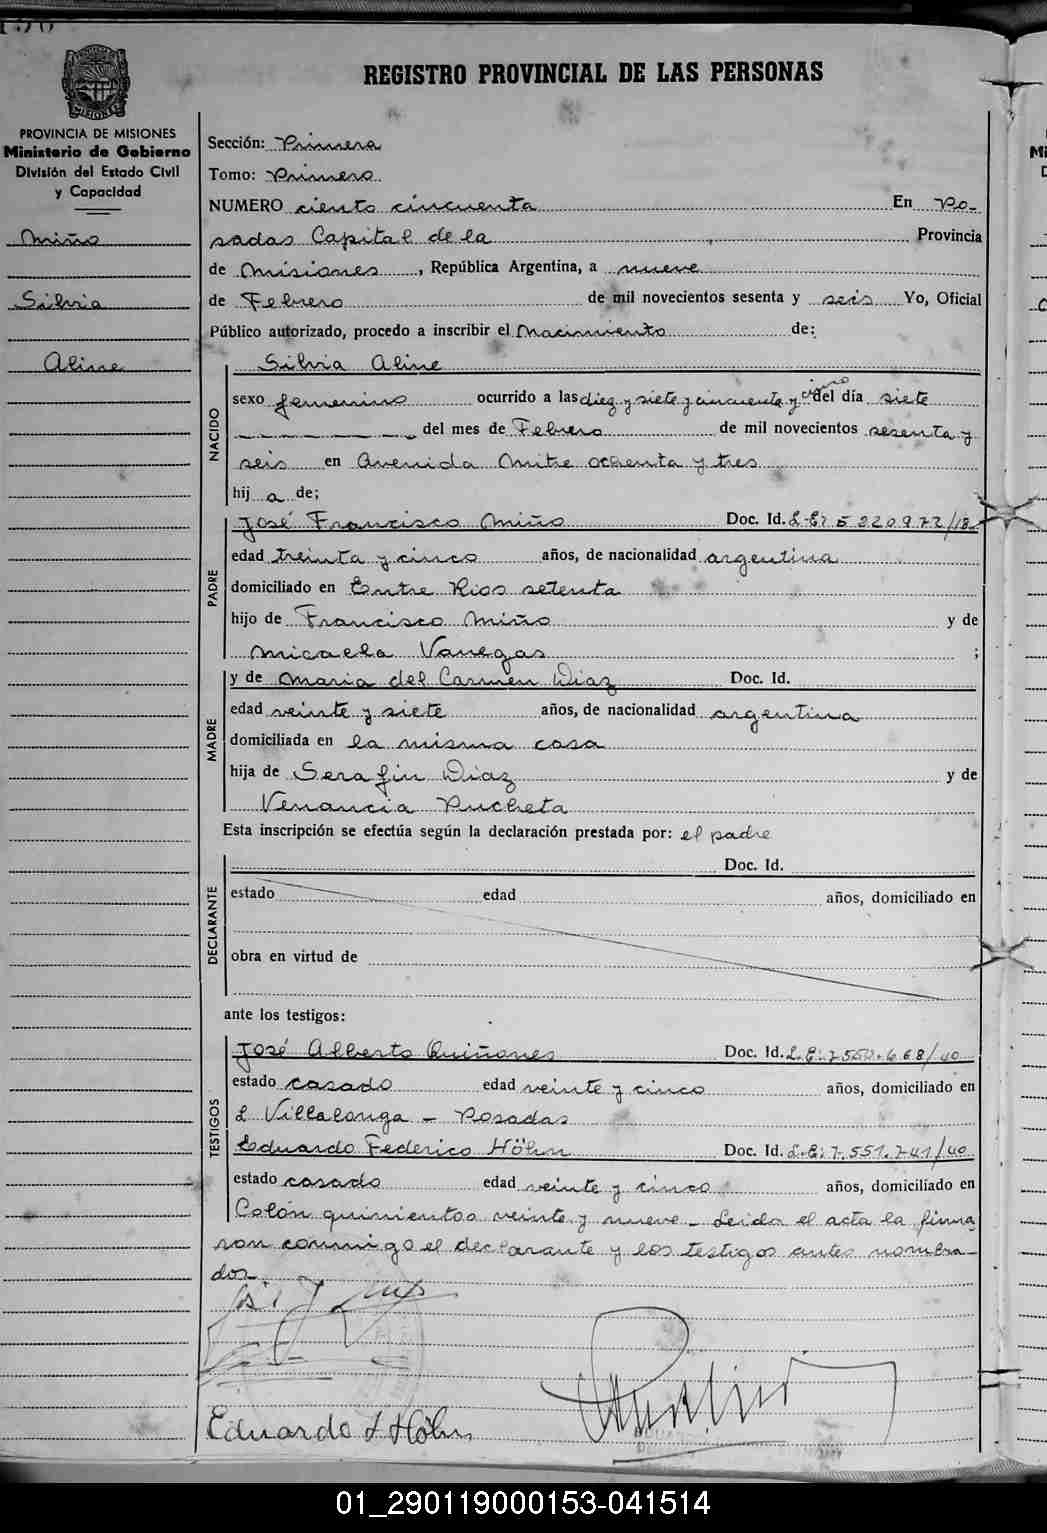 REGISTRO PROVINCIAL DE LAS PERSONAS
PROVINCIA DE MISIONES
Ministerio de Gobierno
División del Estado Civil
y Capacidad
Miño
Silvia
Aline
Sección: Primera
Tomo: Primero
NUMERO ciento cincuenta En Po-
sadas Capital de la Provincia
de Misiones, República Argentina, a nueve
de Febrero de mil novecientos sesenta y seis Yo, Oficial
Público autorizado, procedo a inscribir el Nacimiento de:
Silvia Aline
NACIDO
sexo femenino ocurrido a las diez y siete y cincuenta y cinco del día siete
del mes de Febrero de mil novecientos sesenta y
seis en Avenida Mitre ochenta y tres
hij a de;
PADRE
José Francisco Miño Doc. Id. L.E: 5220972/18
edad treinta y cinco años, de nacionalidad argentina
domiciliado en Entre Rios setenta
hijo de Francisco Miño y de
Micaela Vanegas ;
MADRE
y de Maria del Carmen Diaz Doc. Id.
edad veinte y siete años, de nacionalidad argentina
domiciliada en la misma casa
hija de Serafin Diaz y de
Venancia Pucheta
Esta inscripción se efectúa según la declaración prestada por: el padre
DECLARANTE
Doc. Id.
estado edad años, domiciliado en
obra en virtud de
ante los testigos:
TESTIGOS
José Alberto Quiñones Doc. Id. L.E: 7550.668/40
estado casado edad veinte y cinco años, domiciliado en
Villalonga - Posadas
Eduardo Federico Höhn Doc. Id. L.E: 7.551.741/40
estado casado edad veinte y cinco años, domiciliado en
Colón quinientos veinte y nueve - Leida el acta la firma
ron conmigo el declarante y los testigos antes nombra-
dos-
Eduardo F Höhn
01_290119000153-041514